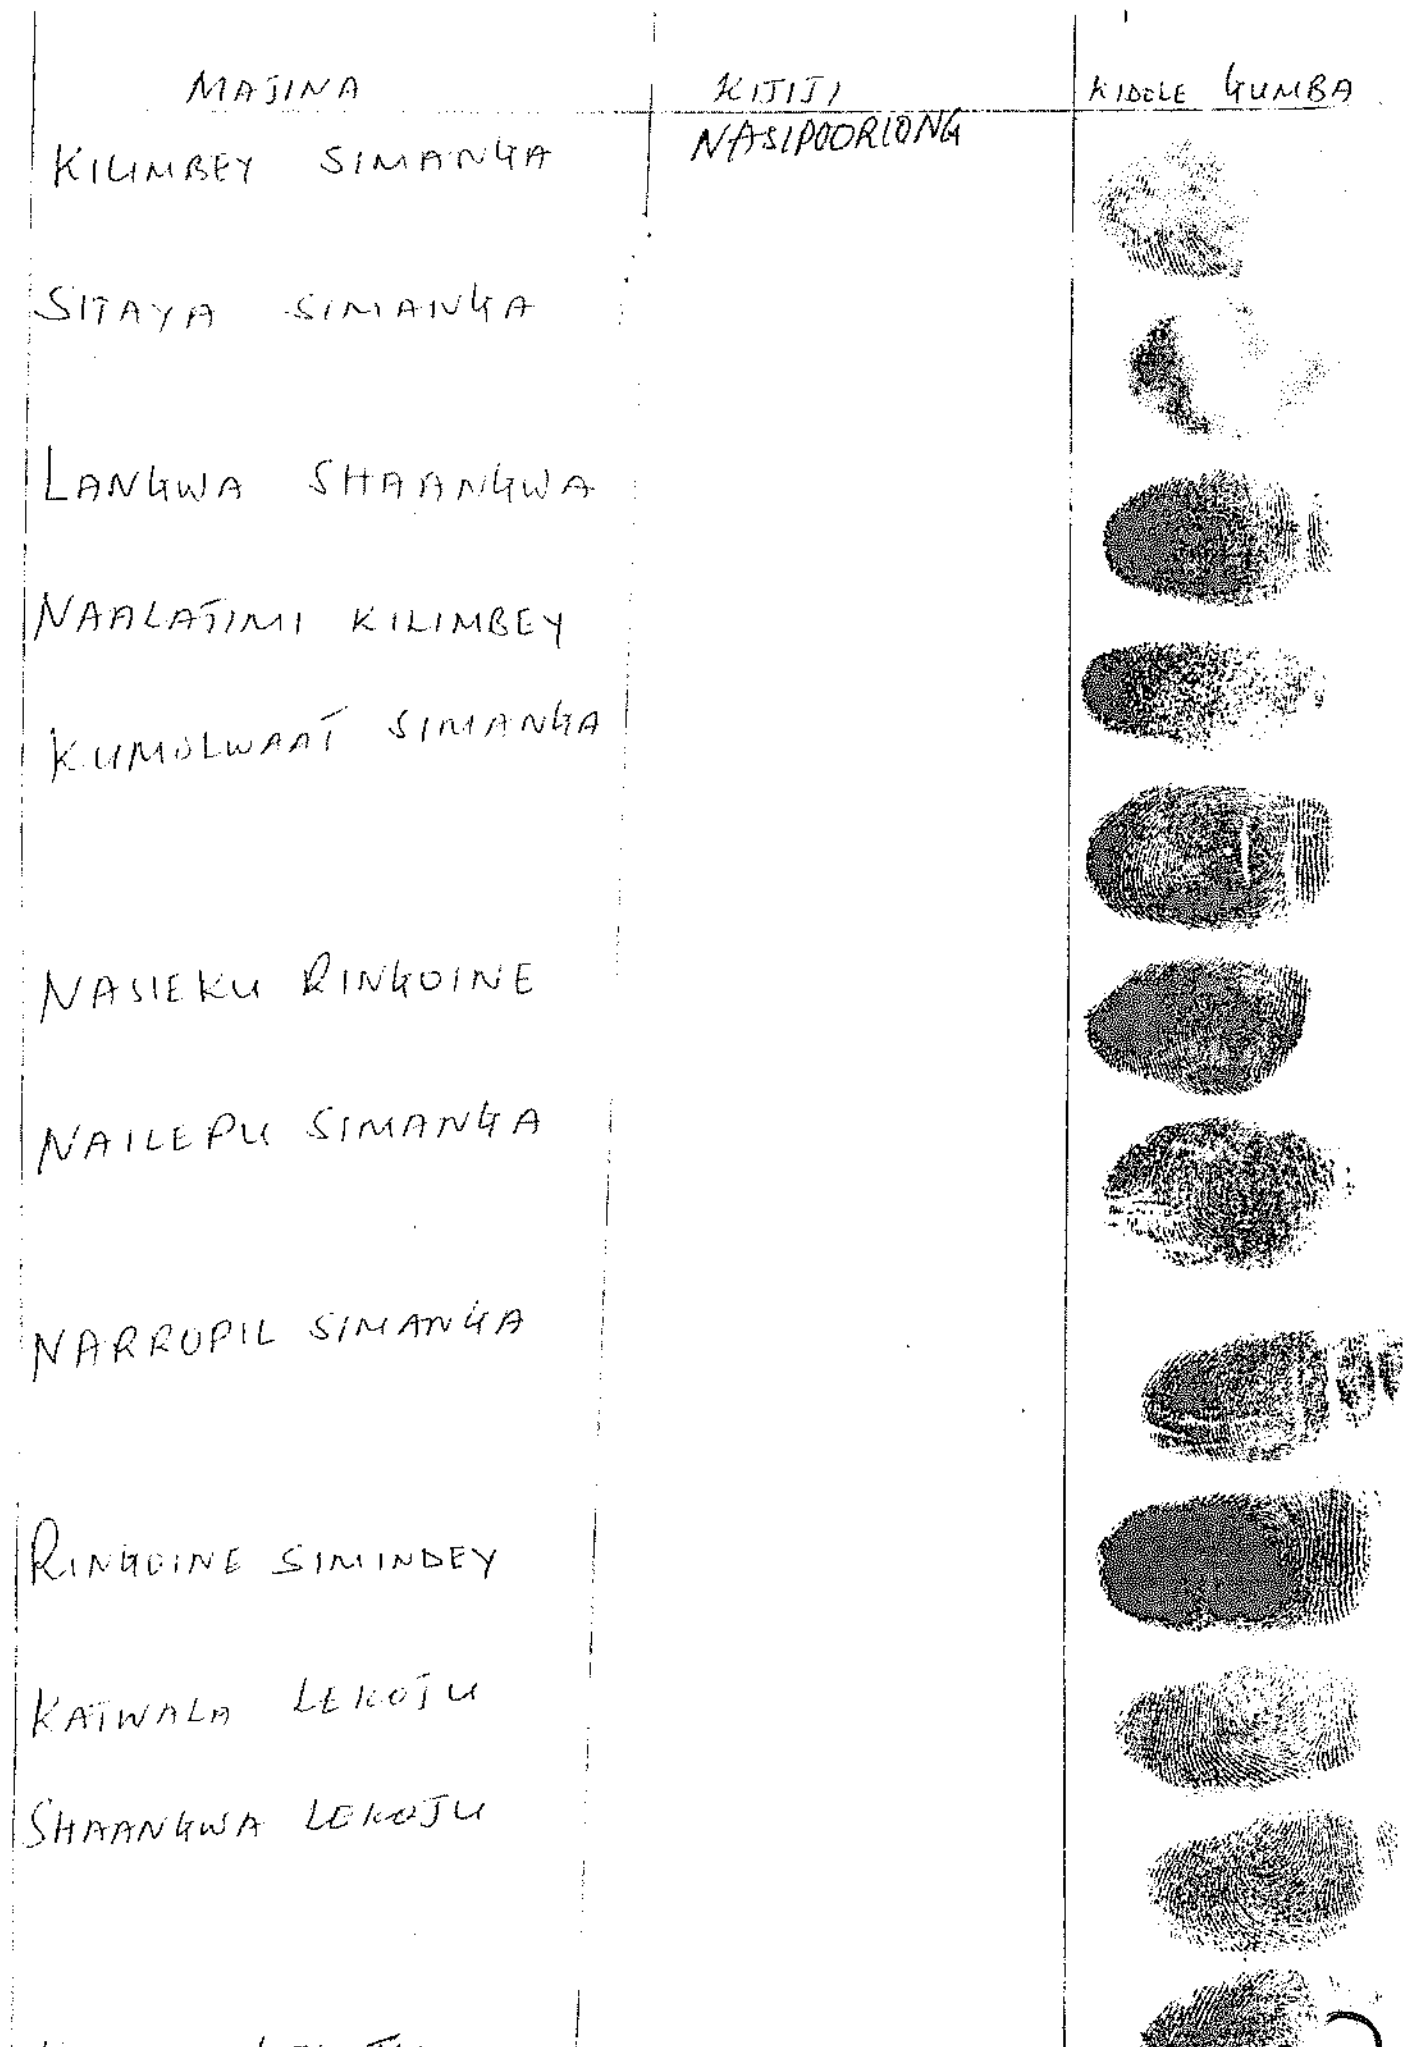 MAJINA KIJIJI KIDOLE GUMBA
KILIMBEY SIMANGA NASIPOORIONG
SITAYA SIMANGA
LANGWA SHAANGWA
NAALATIMI KILIMBEY
KUMOLWAAT SIMANGA
NASIEKU RINGOINE
NAILEPU SIMANGA
NARROPIL SIMANGA
RINGOINE SIMINDEY
KATWALA LEKOJU
SHAANGWA LEKOJU